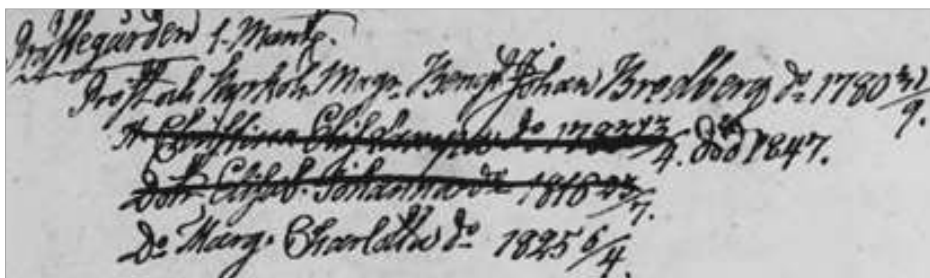 Prästegården 1. Mantz.
Prost och Kyrkoh. Magr. Bengt Johan Bredberg do 1780 21/9.
H. Christina do 1787 13/4. död 1847.
Dottr. Elisab. Johanna do 1818 23/7.
Do Marg. Charlotta do 1825 6/4.